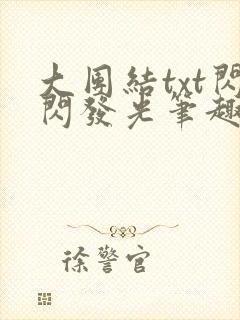 大團結txt閃
閃發光筆趣
徐警官